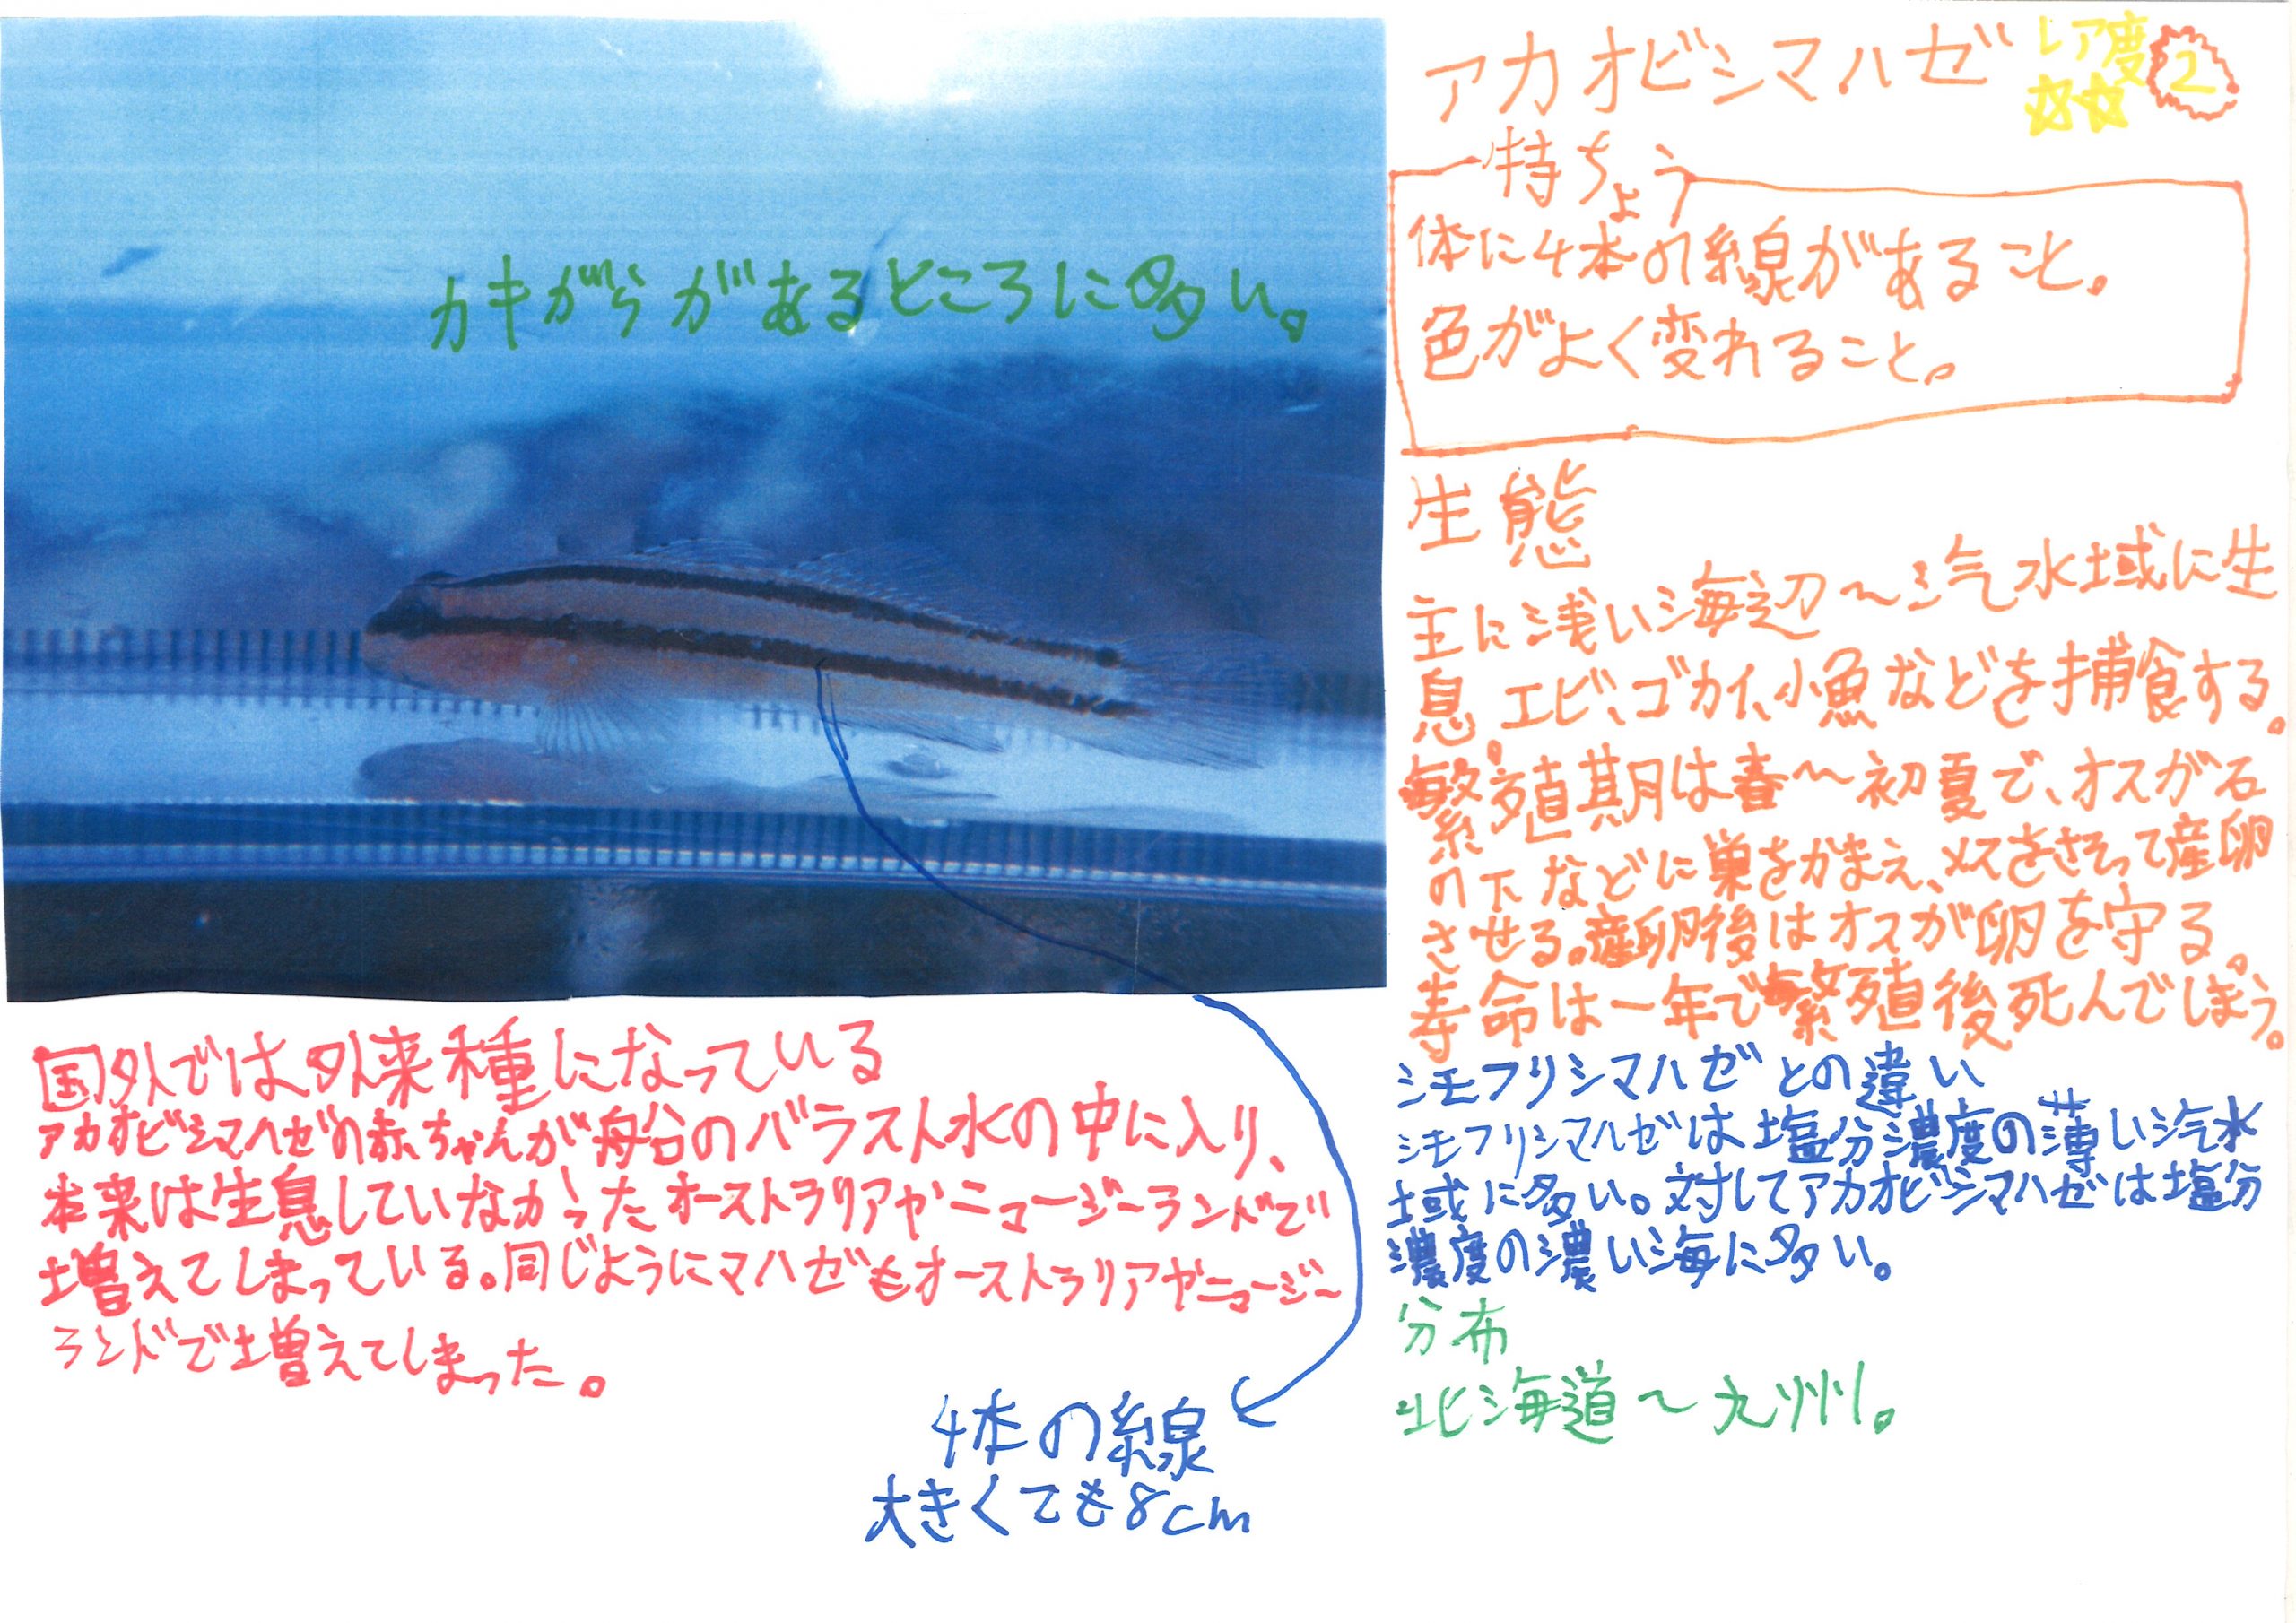 アカオビシマハゼ
レア度
☆☆
2
特ちょう
体に4本の線があること。
色がよく変れること。
生態
主に浅い海辺〜汽水域に生
息。エビ、ゴカイ、小魚などを捕食する。
繁殖期は春〜初夏で、オスが石
の下などに巣をかまえ、メスをさそって産卵
させる。産卵後はオスが卵を守る。
寿命は一年で繁殖後死んでしまう。
シモフリシマハゼとの違い
シモフリシマハゼは塩分濃度の薄い汽水
域に多い。対してアカオビシマハゼは塩分
濃度の濃い海に多い。
分布
北海道〜九州。
カキがらがあるところに多い。
国外では外来種になっている
アカオビシマハゼの赤ちゃんが船のバラスト水の中に入り、
本来は生息していなかったオーストラリアやニュージーランドで
増えてしまっている。同じようにマハゼもオーストラリアやニュージー
ランドで増えてしまった。
4本の線
大きくても8cm